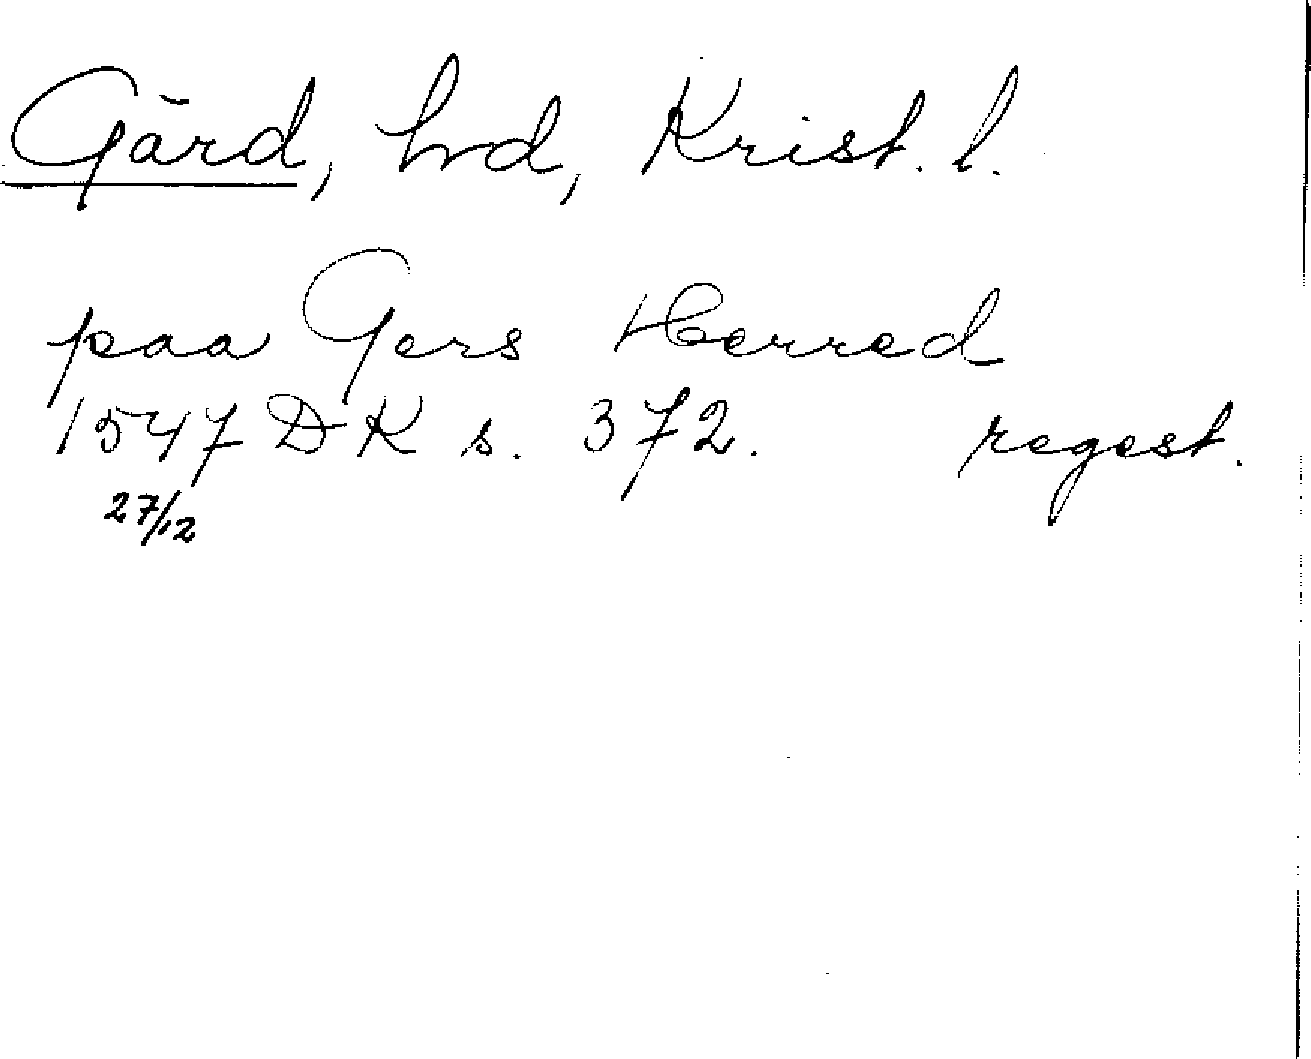 Gärd, hrd, Krist. l.
paa Gers Herred
1547 DK s. 372. regest.
27/12